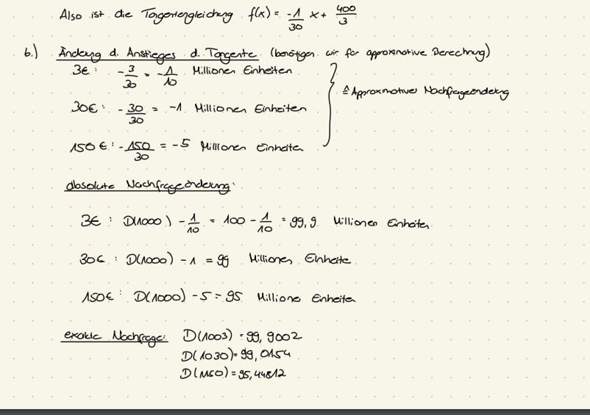 Also ist die Tangentengleichung f(x) = -1/30 x + 400/3
b.) Änderung d. Anstieges d. Tangente (benötigen wir für approximative Berechnung)
3€ : -3/30 = -1/10 Millionen Einheiten
30€ : -30/30 = -1 Millionen Einheiten
≙ Approximative Nachfrageänderung
150€ : -150/30 = -5 Millionen Einheiten
absolute Nachfrageänderung:
3€ : D(1000) - 1/10 = 100 - 1/10 = 99,9 Millionen Einheiten
30€ : D(1000) - 1 = 99 Millionen Einheite
150€ : D(1000) - 5 = 95 Millione Einheiten
exakte Nachfrage: D(1003) = 99,9002
D(1030) = 99,0154
D(1150) = 95,44812